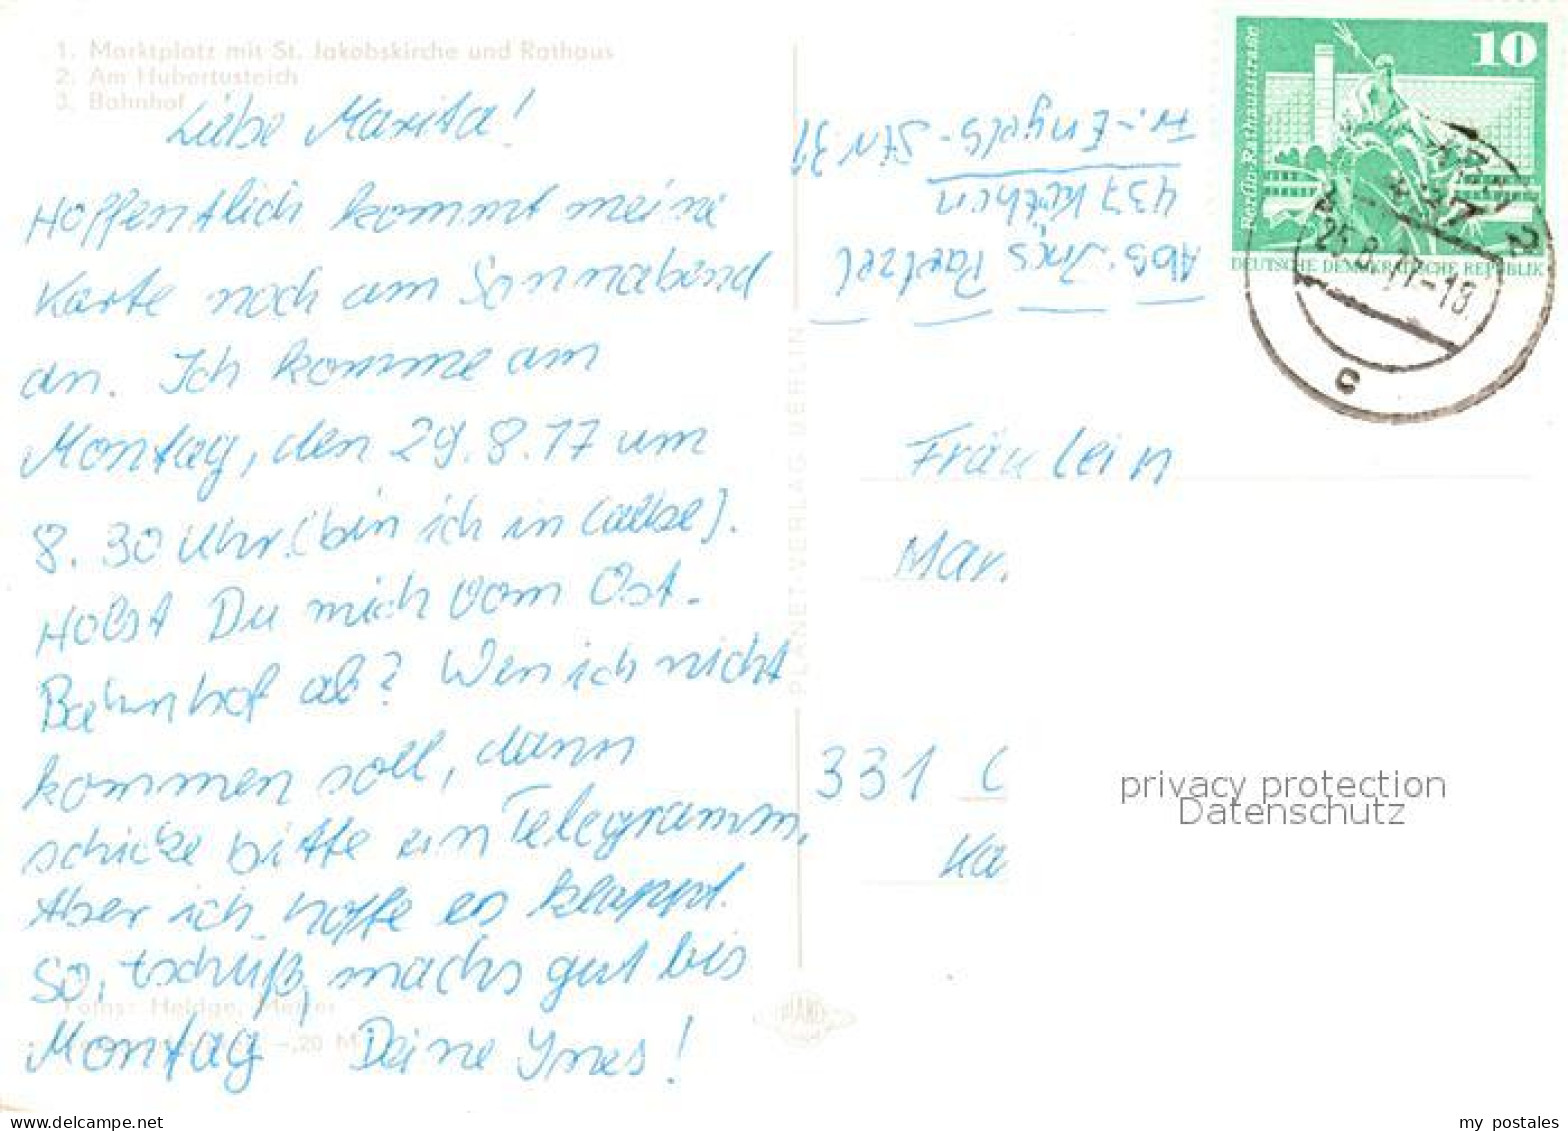 1. Marktplatz mit St. Jakobskirche und Rathaus
2. Am Hubertusteich
3. Bahnhof
Liebe Marita!
Hoffentlich kommt meine
Karte noch am Sonnabend
an. Ich komme am
Montag, den 29.8.77 um
8.30 Uhr (bin ich in Calbe).
Holst Du mich vom Ost-
Bahnhof ab? Wen ich nicht
kommen soll, dann
schicke bitte ein Telegramm.
Aber ich hoffe es klappt.
So, tschüß, machs gut bis
Montag Deine Ines!
Fotos: Heldge,
-,20 M
PLANET-VERLAG BERLIN
PLANET
Abs. Ines Paetzel
437 Köthen
Fr.-Engels-Str. 31
10
Berlin-Rathausstraße
DEUTSCHE DEMOKRATISCHE REPUBLIK
437 2
25.8.77-18
c
Fräulein
Mar.
331 C
Ka
privacy protection
Datenschutz
my postales